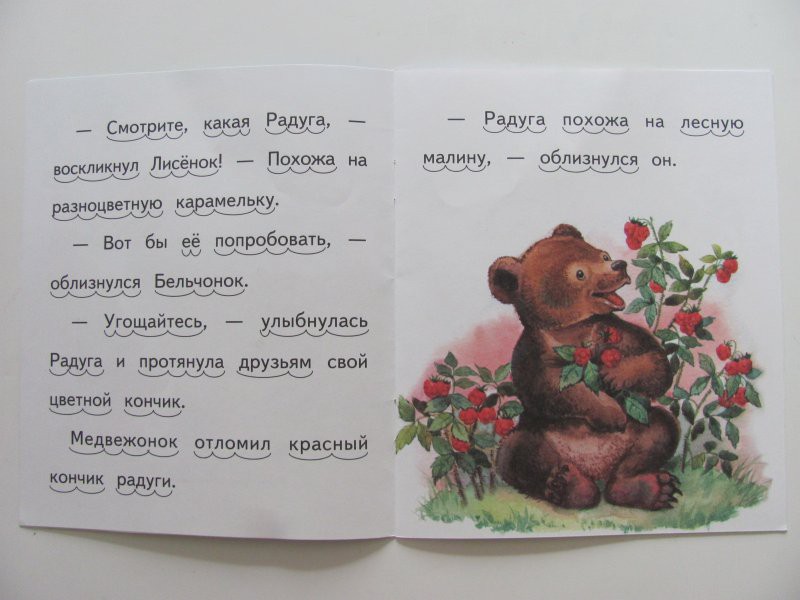 — Смотрите, какая Радуга, —
воскликнул Лисёнок! — Похожа на
разноцветную карамельку.
— Вот бы её попробовать, —
облизнулся Бельчонок.
— Угощайтесь, — улыбнулась
Радуга и протянула друзьям свой
цветной кончик.
Медвежонок отломил красный
кончик радуги.
— Радуга похожа на лесную
малину, — облизнулся он.